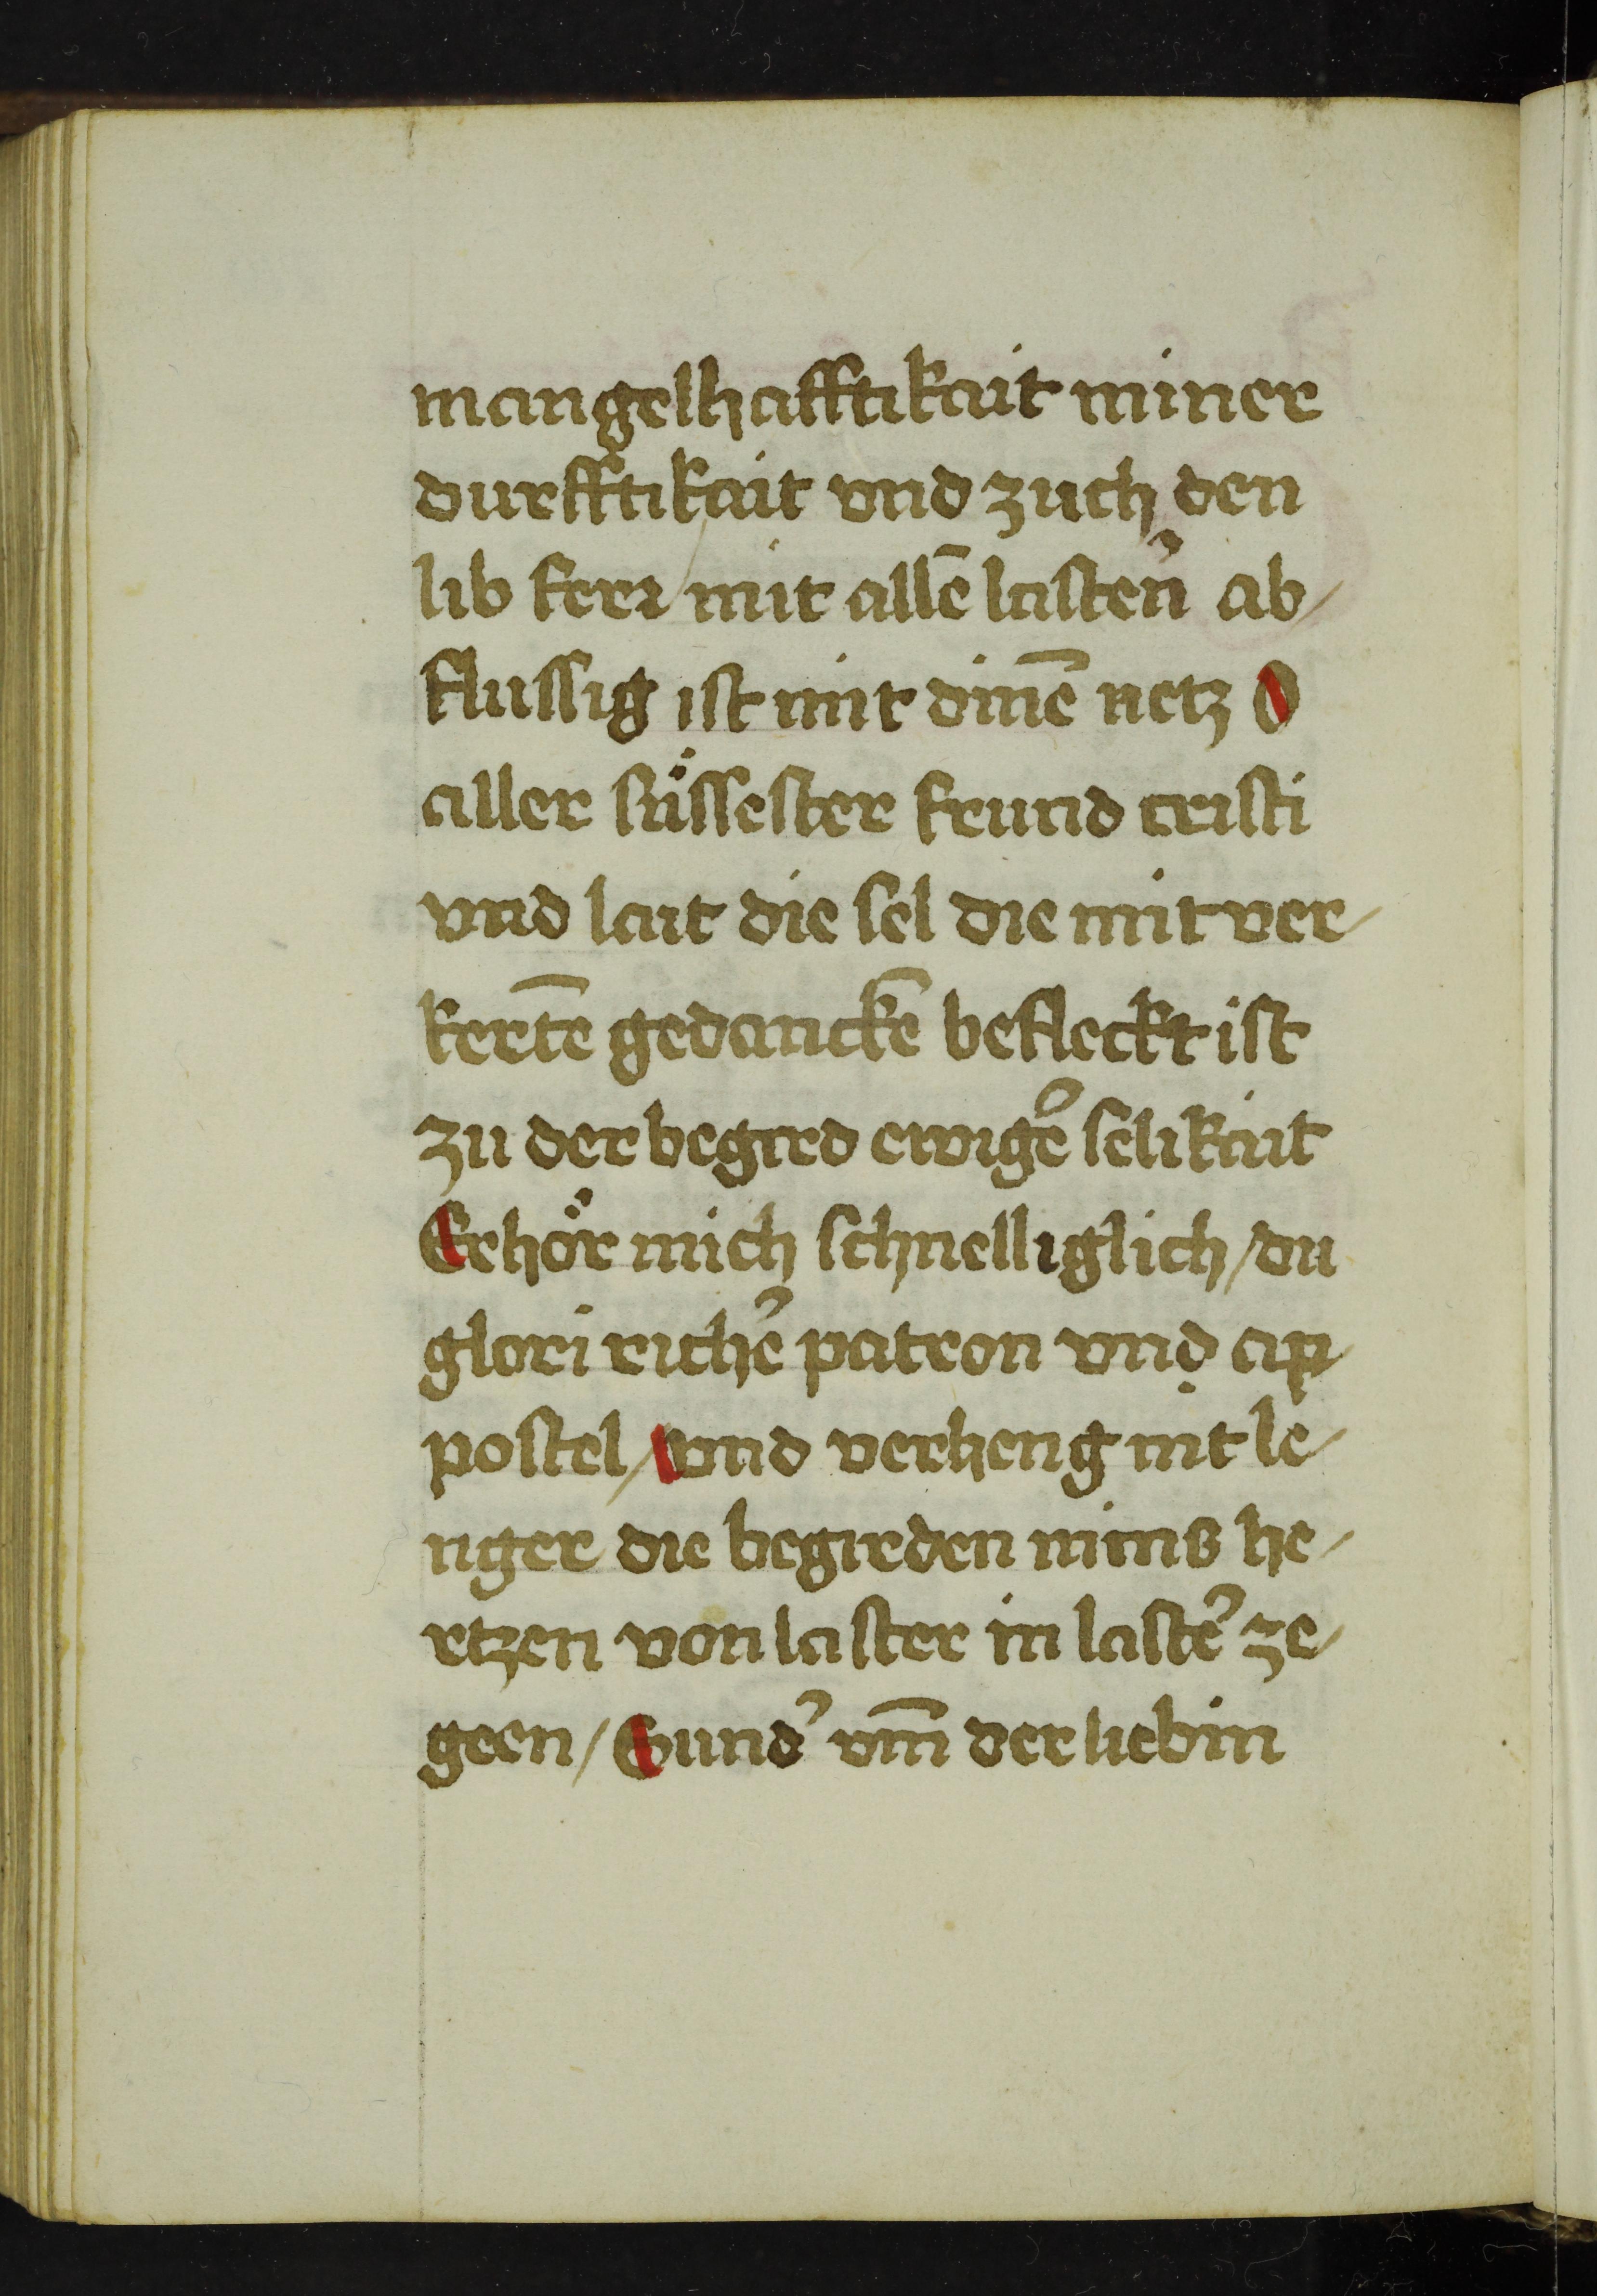 mangelhafftikait miner
durfftikait vnd zuch den
lib ferr / mit allē lasteň ab /
flussig ist mit dinē netz O
aller süssester frund cristi
vnd lait die sel die mit ver /
kertē gedanckē befleckt ist
zu der begird ewige᾽ selikait
Erhör mich schnelliglich / du
glori riche᾽ patron vnd ap /
postel / vnd verheng nit le /
nger die begirden mins he /
rtzen von laster in laste᾽ ze /
geen / Sund᾽ vm̄ der liebin